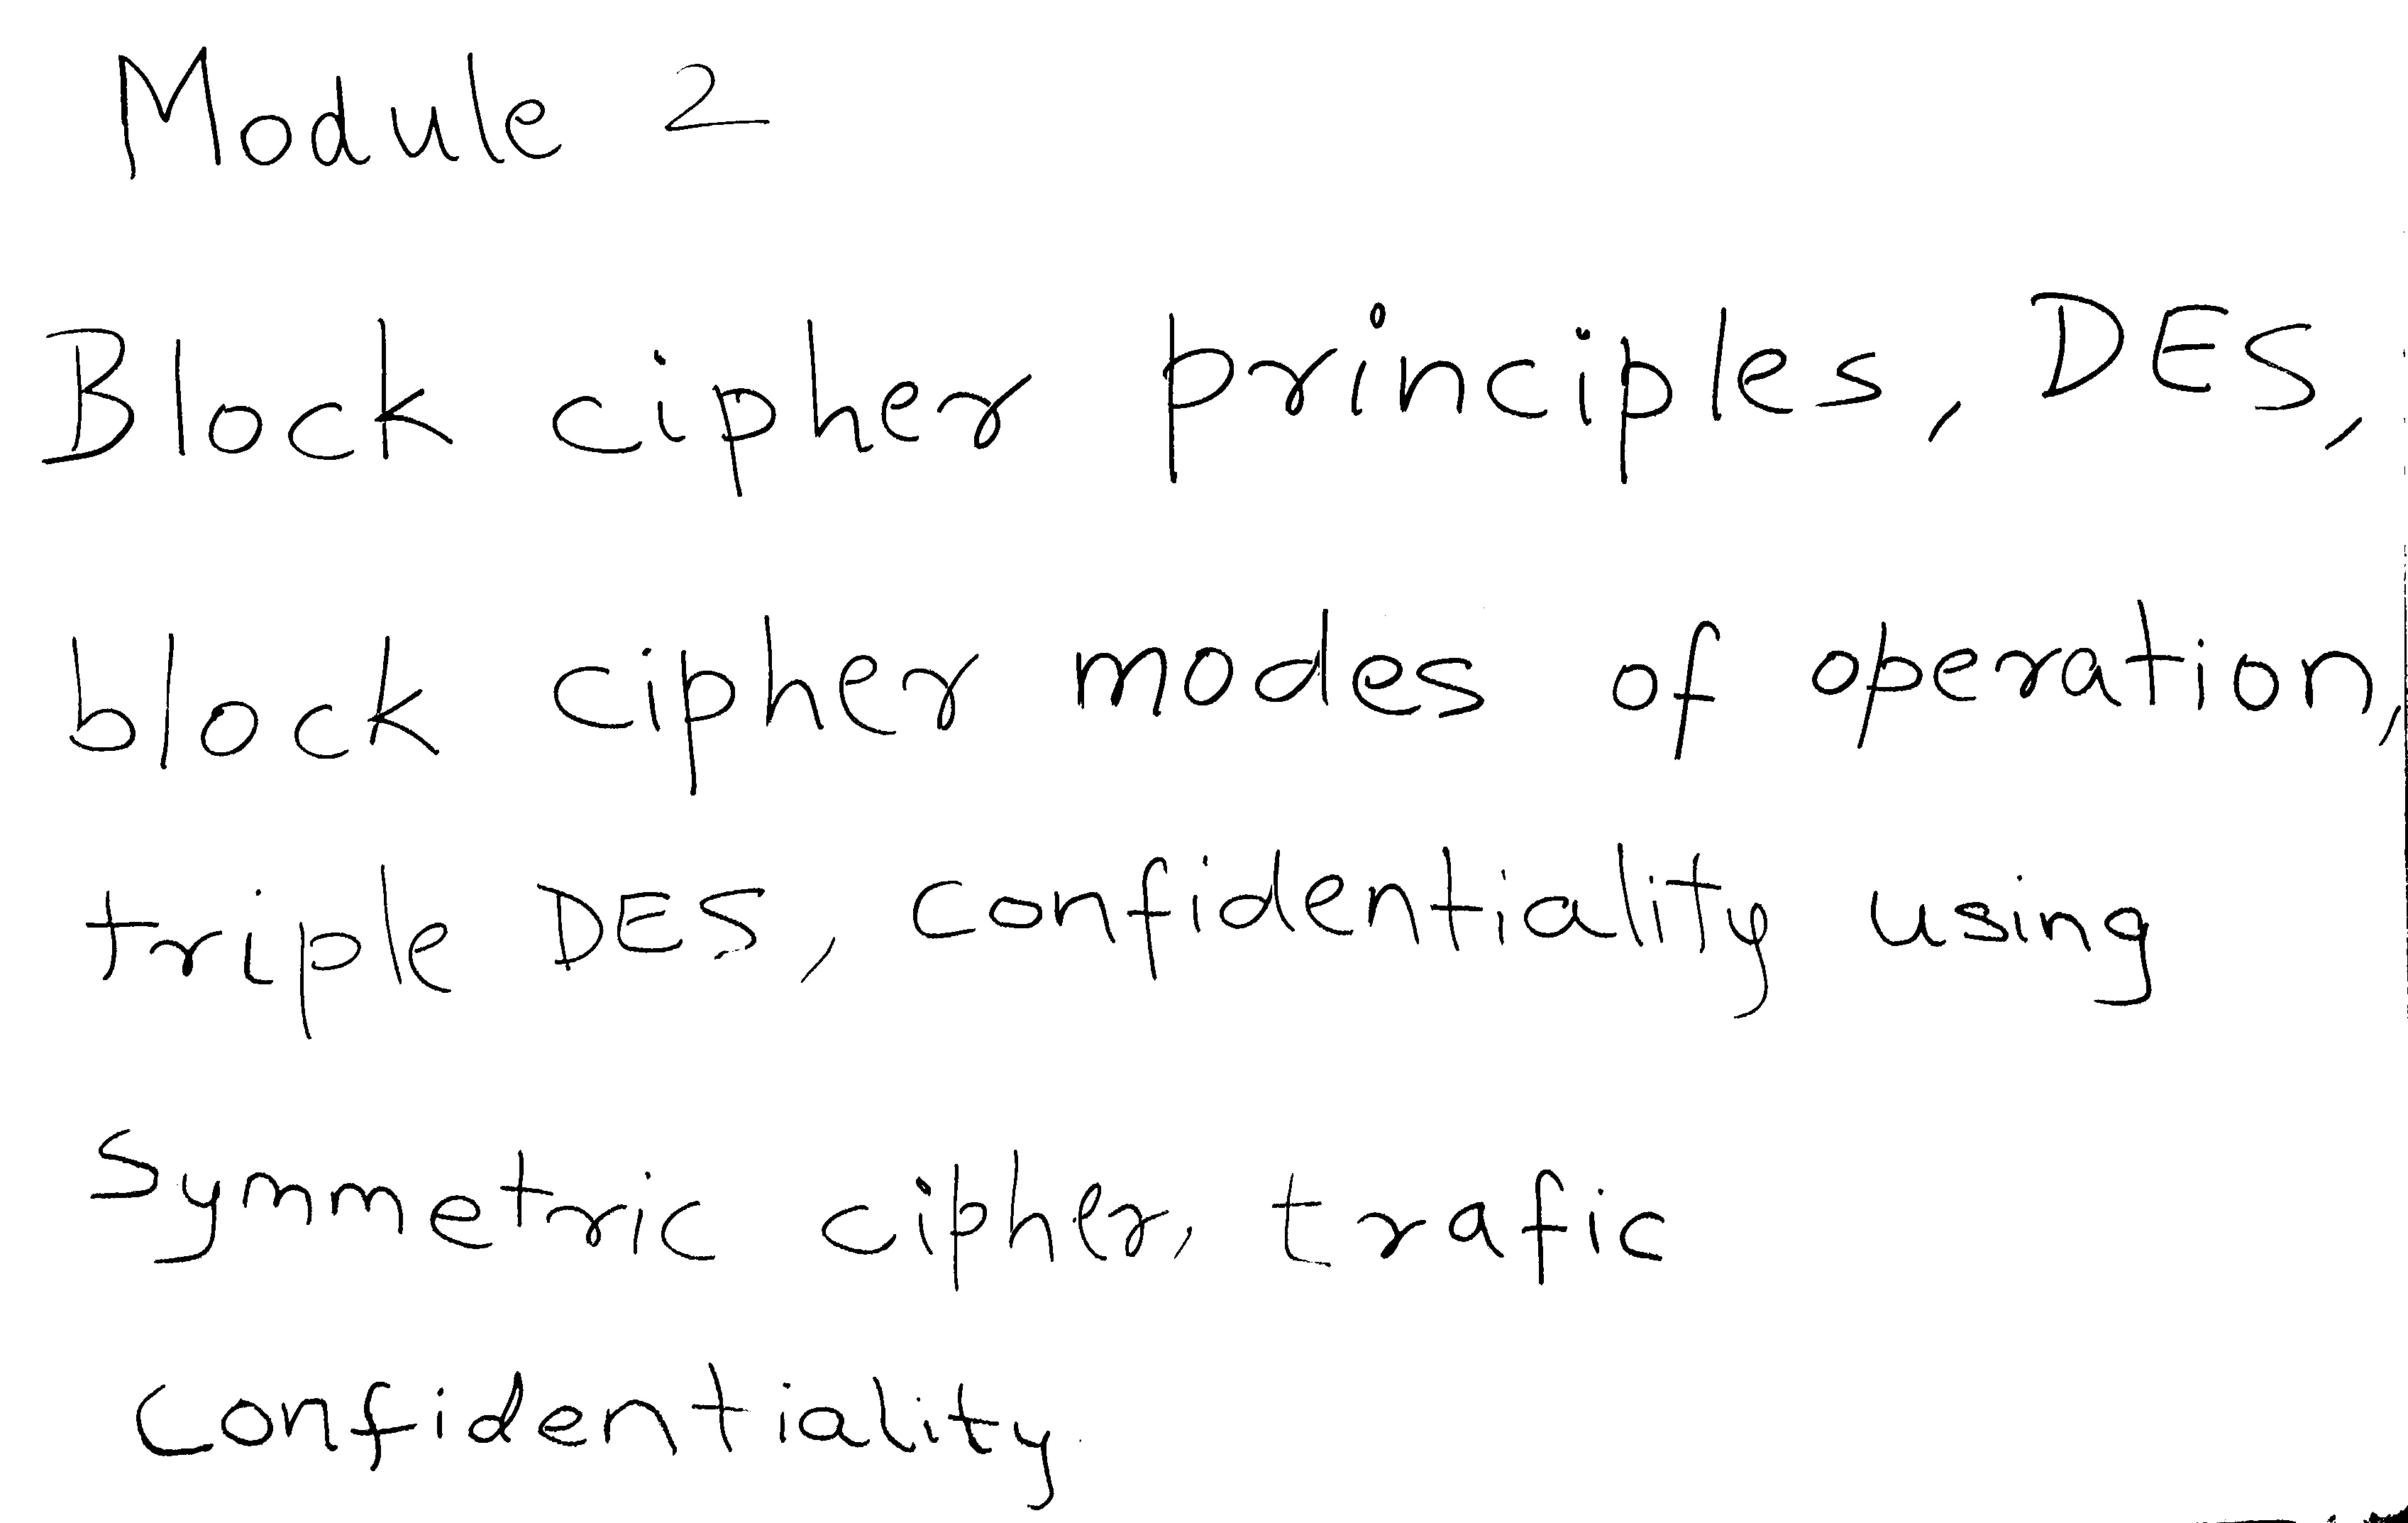 Module 2
Block cipher principles, DES,
block cipher modes of operation,
triple DES, confidentiality using
Symmetric cipher, trafic
confidentiality